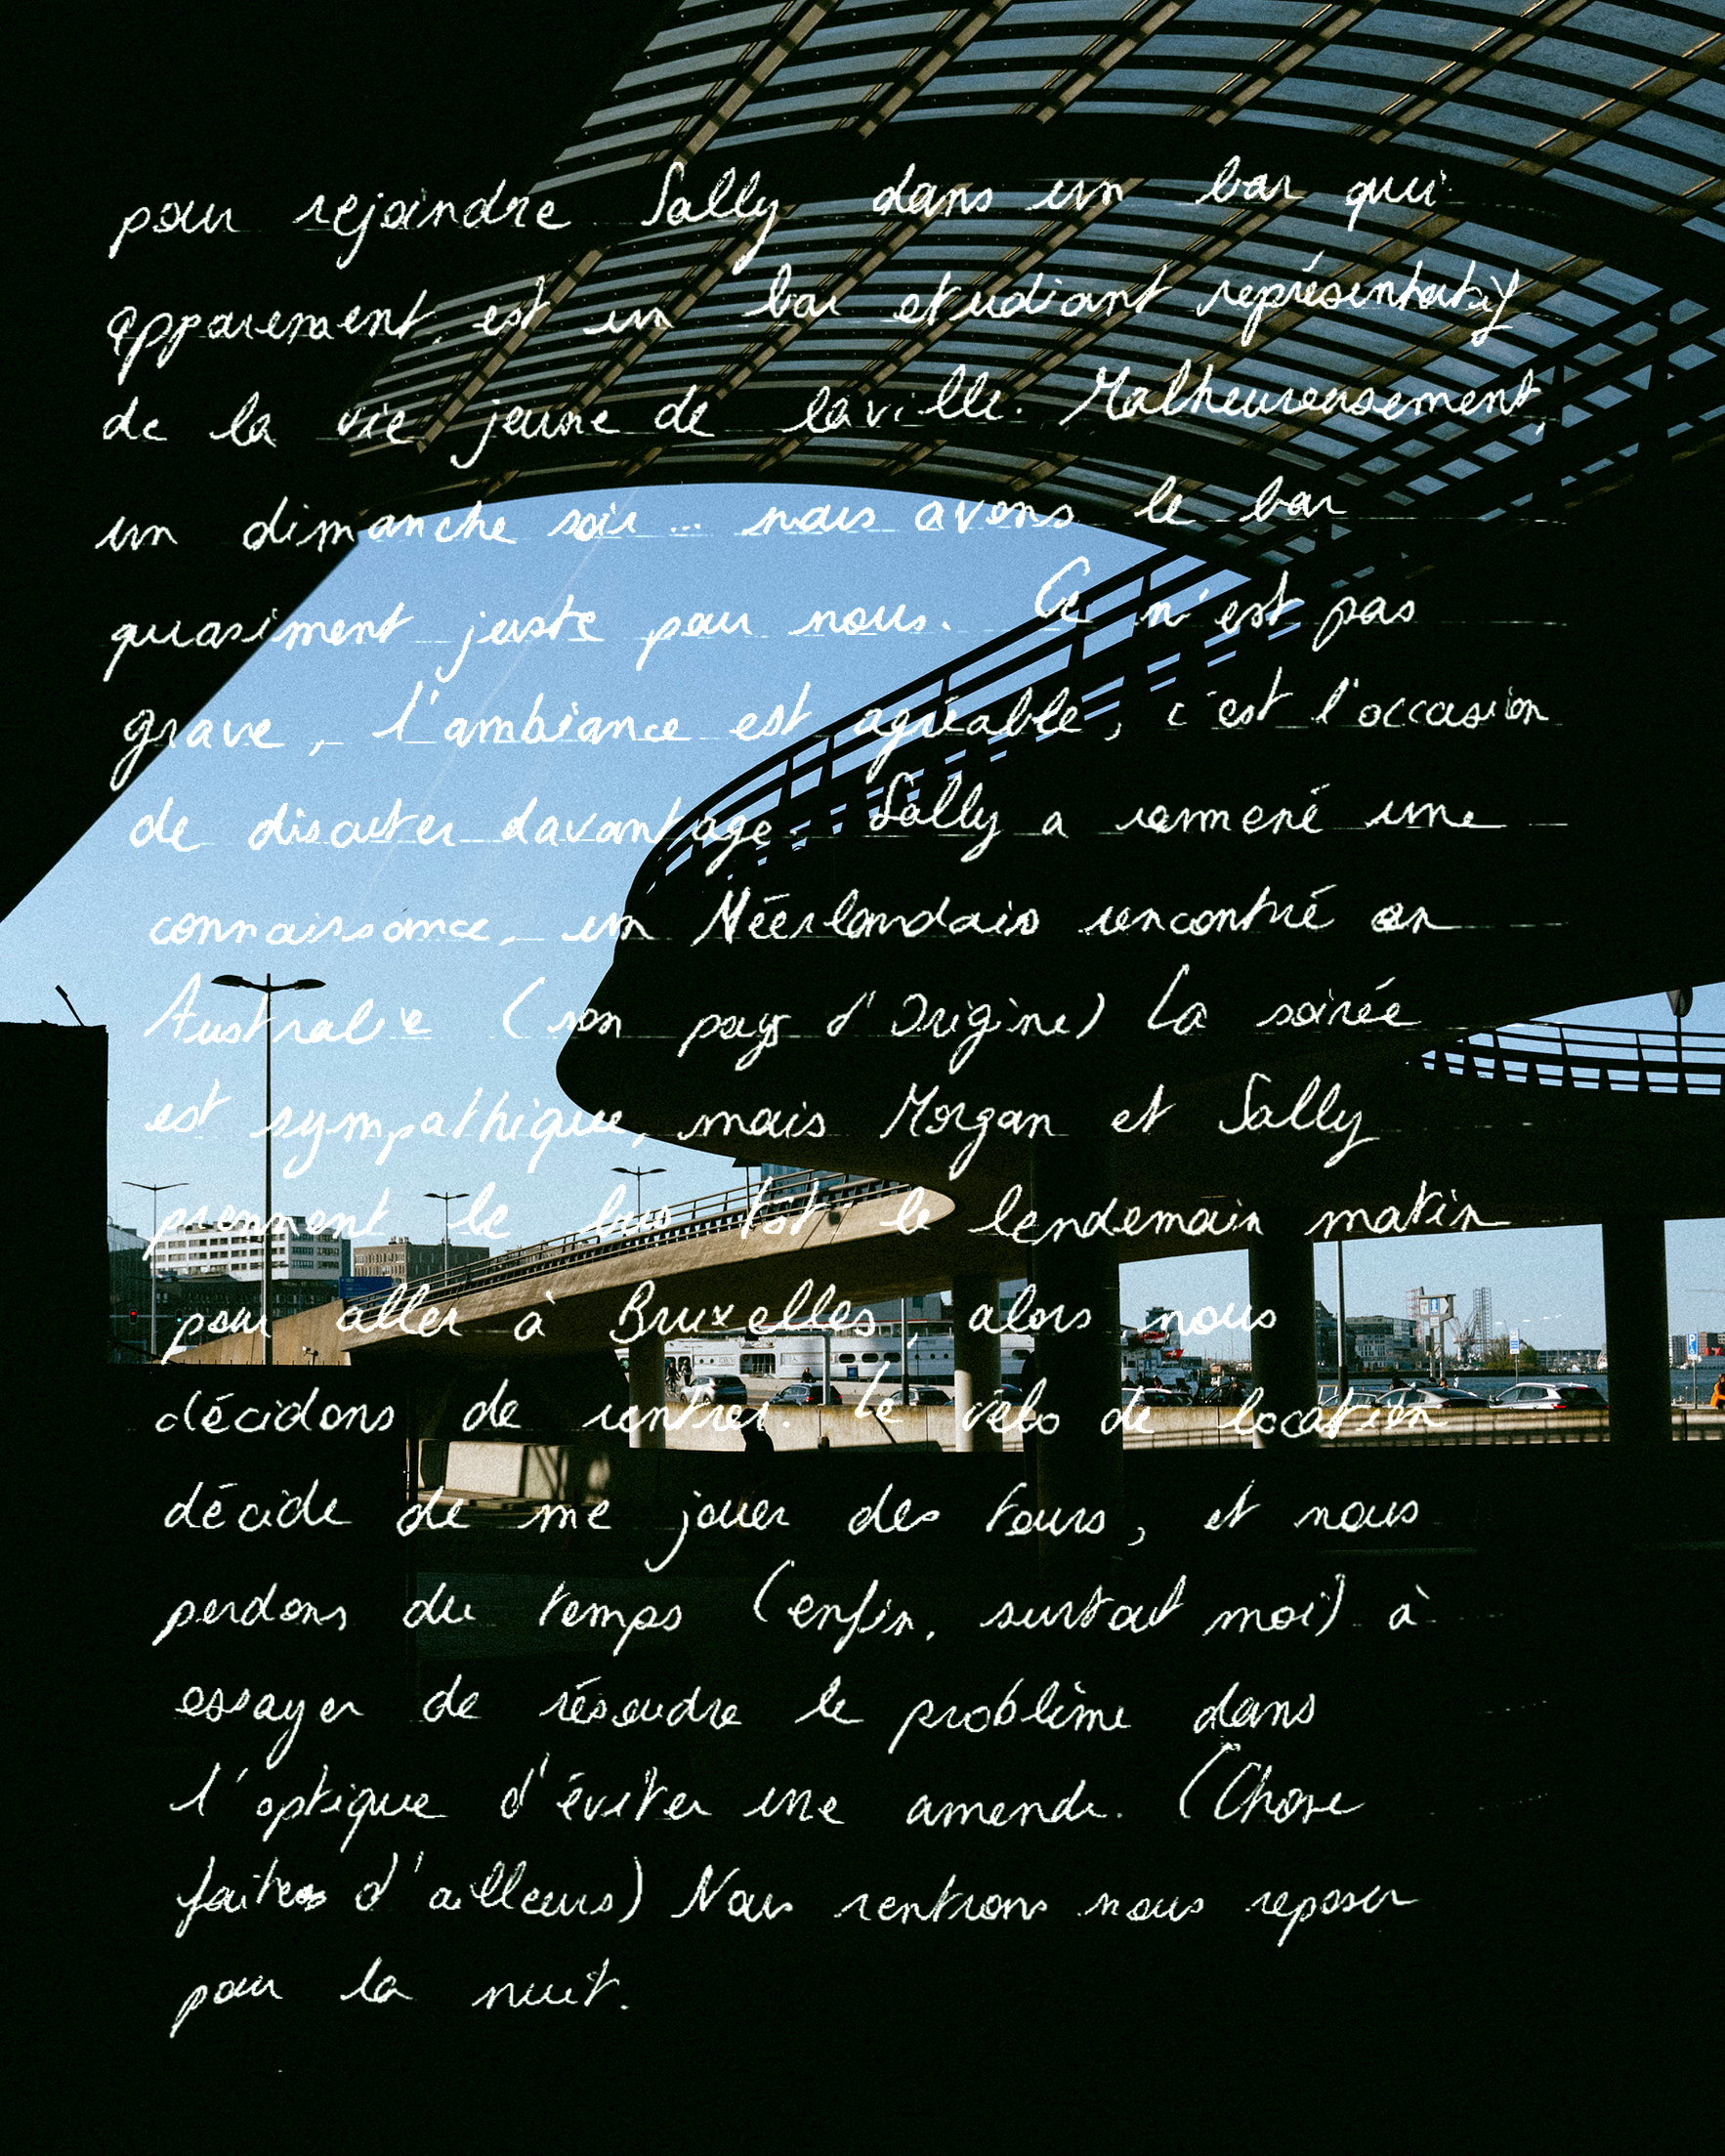 pour rejoindre Sally dans un bar qui
apparement, est un bar etudiant représentatif
de la vie jeune de la ville. Malheureusement,
un dimanche soir... nous avons le bar
quasiment juste pour nous. Ce n'est pas
grave, l'ambiance est agréable, c'est l'occasion
de discuter davantage. Sally a rammené une
connaissance, un Néerlandais rencontré en
Australie (son pays d'Origine) La soirée
est sympathique, mais Morgan et Sally
prennent le bus tôt le lendemain matin
pour aller à Bruxelles, alors nous
décidons de rentrer. Le vélo de location
décide de me jouer des tours, et nous
perdons du temps (enfin, surtout moi) à
essayer de résoudre le problème dans
l'optique d'éviter une amende. (Chose
faites d'ailleurs) Nous rentrons nous reposer
pour la nuit.